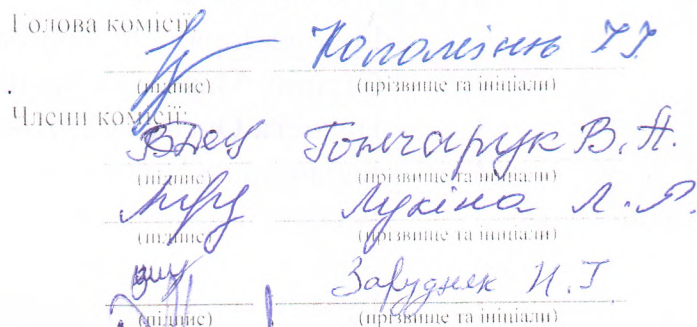 Голова комісії:
(підпис) (прізвище та ініціали)
Члени комісії:
Гончарук В. А.
(підпис) (прізвище та ініціали)
Лукіна Л.
(підпис) (прізвище та ініціали)
Заруднек Н. Г
(підпис) (прізвище та ініціали)